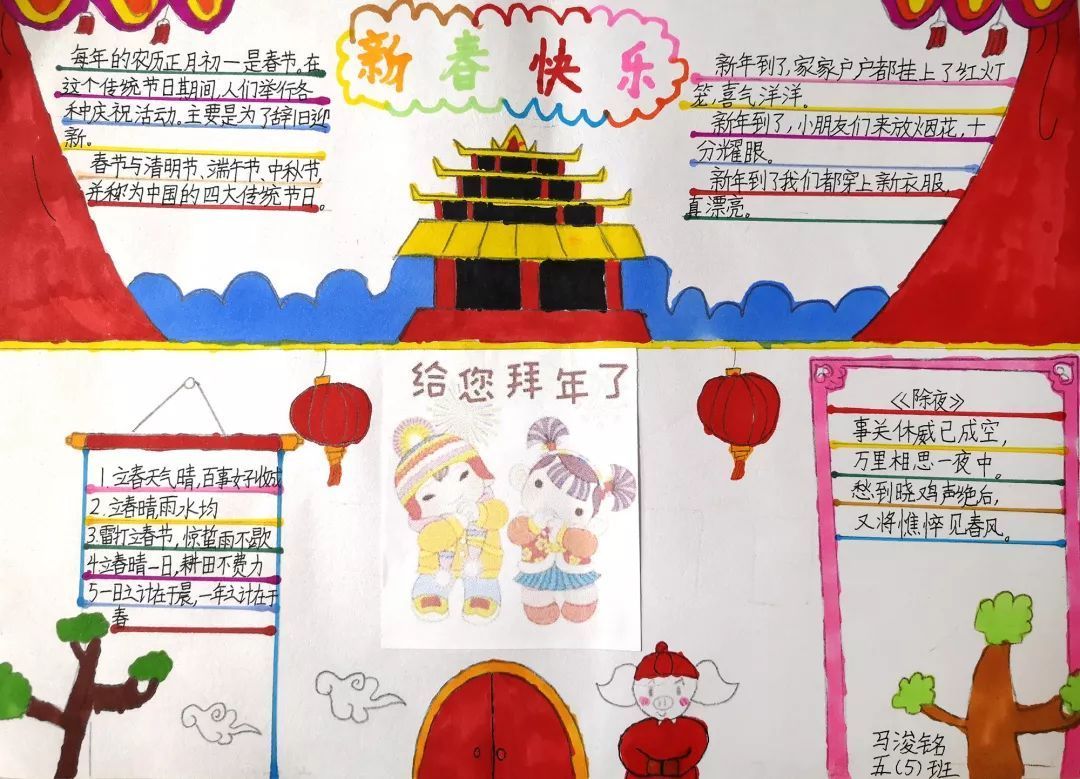 新春快乐
每年的农历正月初一是春节。在
这个传统节日期间,人们举行各
种庆祝活动。主要是为了辞旧迎
新。
春节与清明节、端午节、中秋节,
并称为中国的四大传统节日。
新年到了,家家户户都挂上了红灯
笼,喜气洋洋。
新年到了,小朋友们来放烟花,十
分耀眼。
新年到了我们都穿上新衣服,
真漂亮。
给您拜年了
1.立春天气晴,百事好收成
2.立春晴雨水均
3.雷打立春节,惊蛰雨不歇
4立春晴一日,耕田不费力
5一日之计在于晨,一年之计在于
春
《除夜》
事关休戚已成空,
万里相思一夜中。
愁到晓鸡声绝后,
又将憔悴见春风。
马浚铭
五(5)班